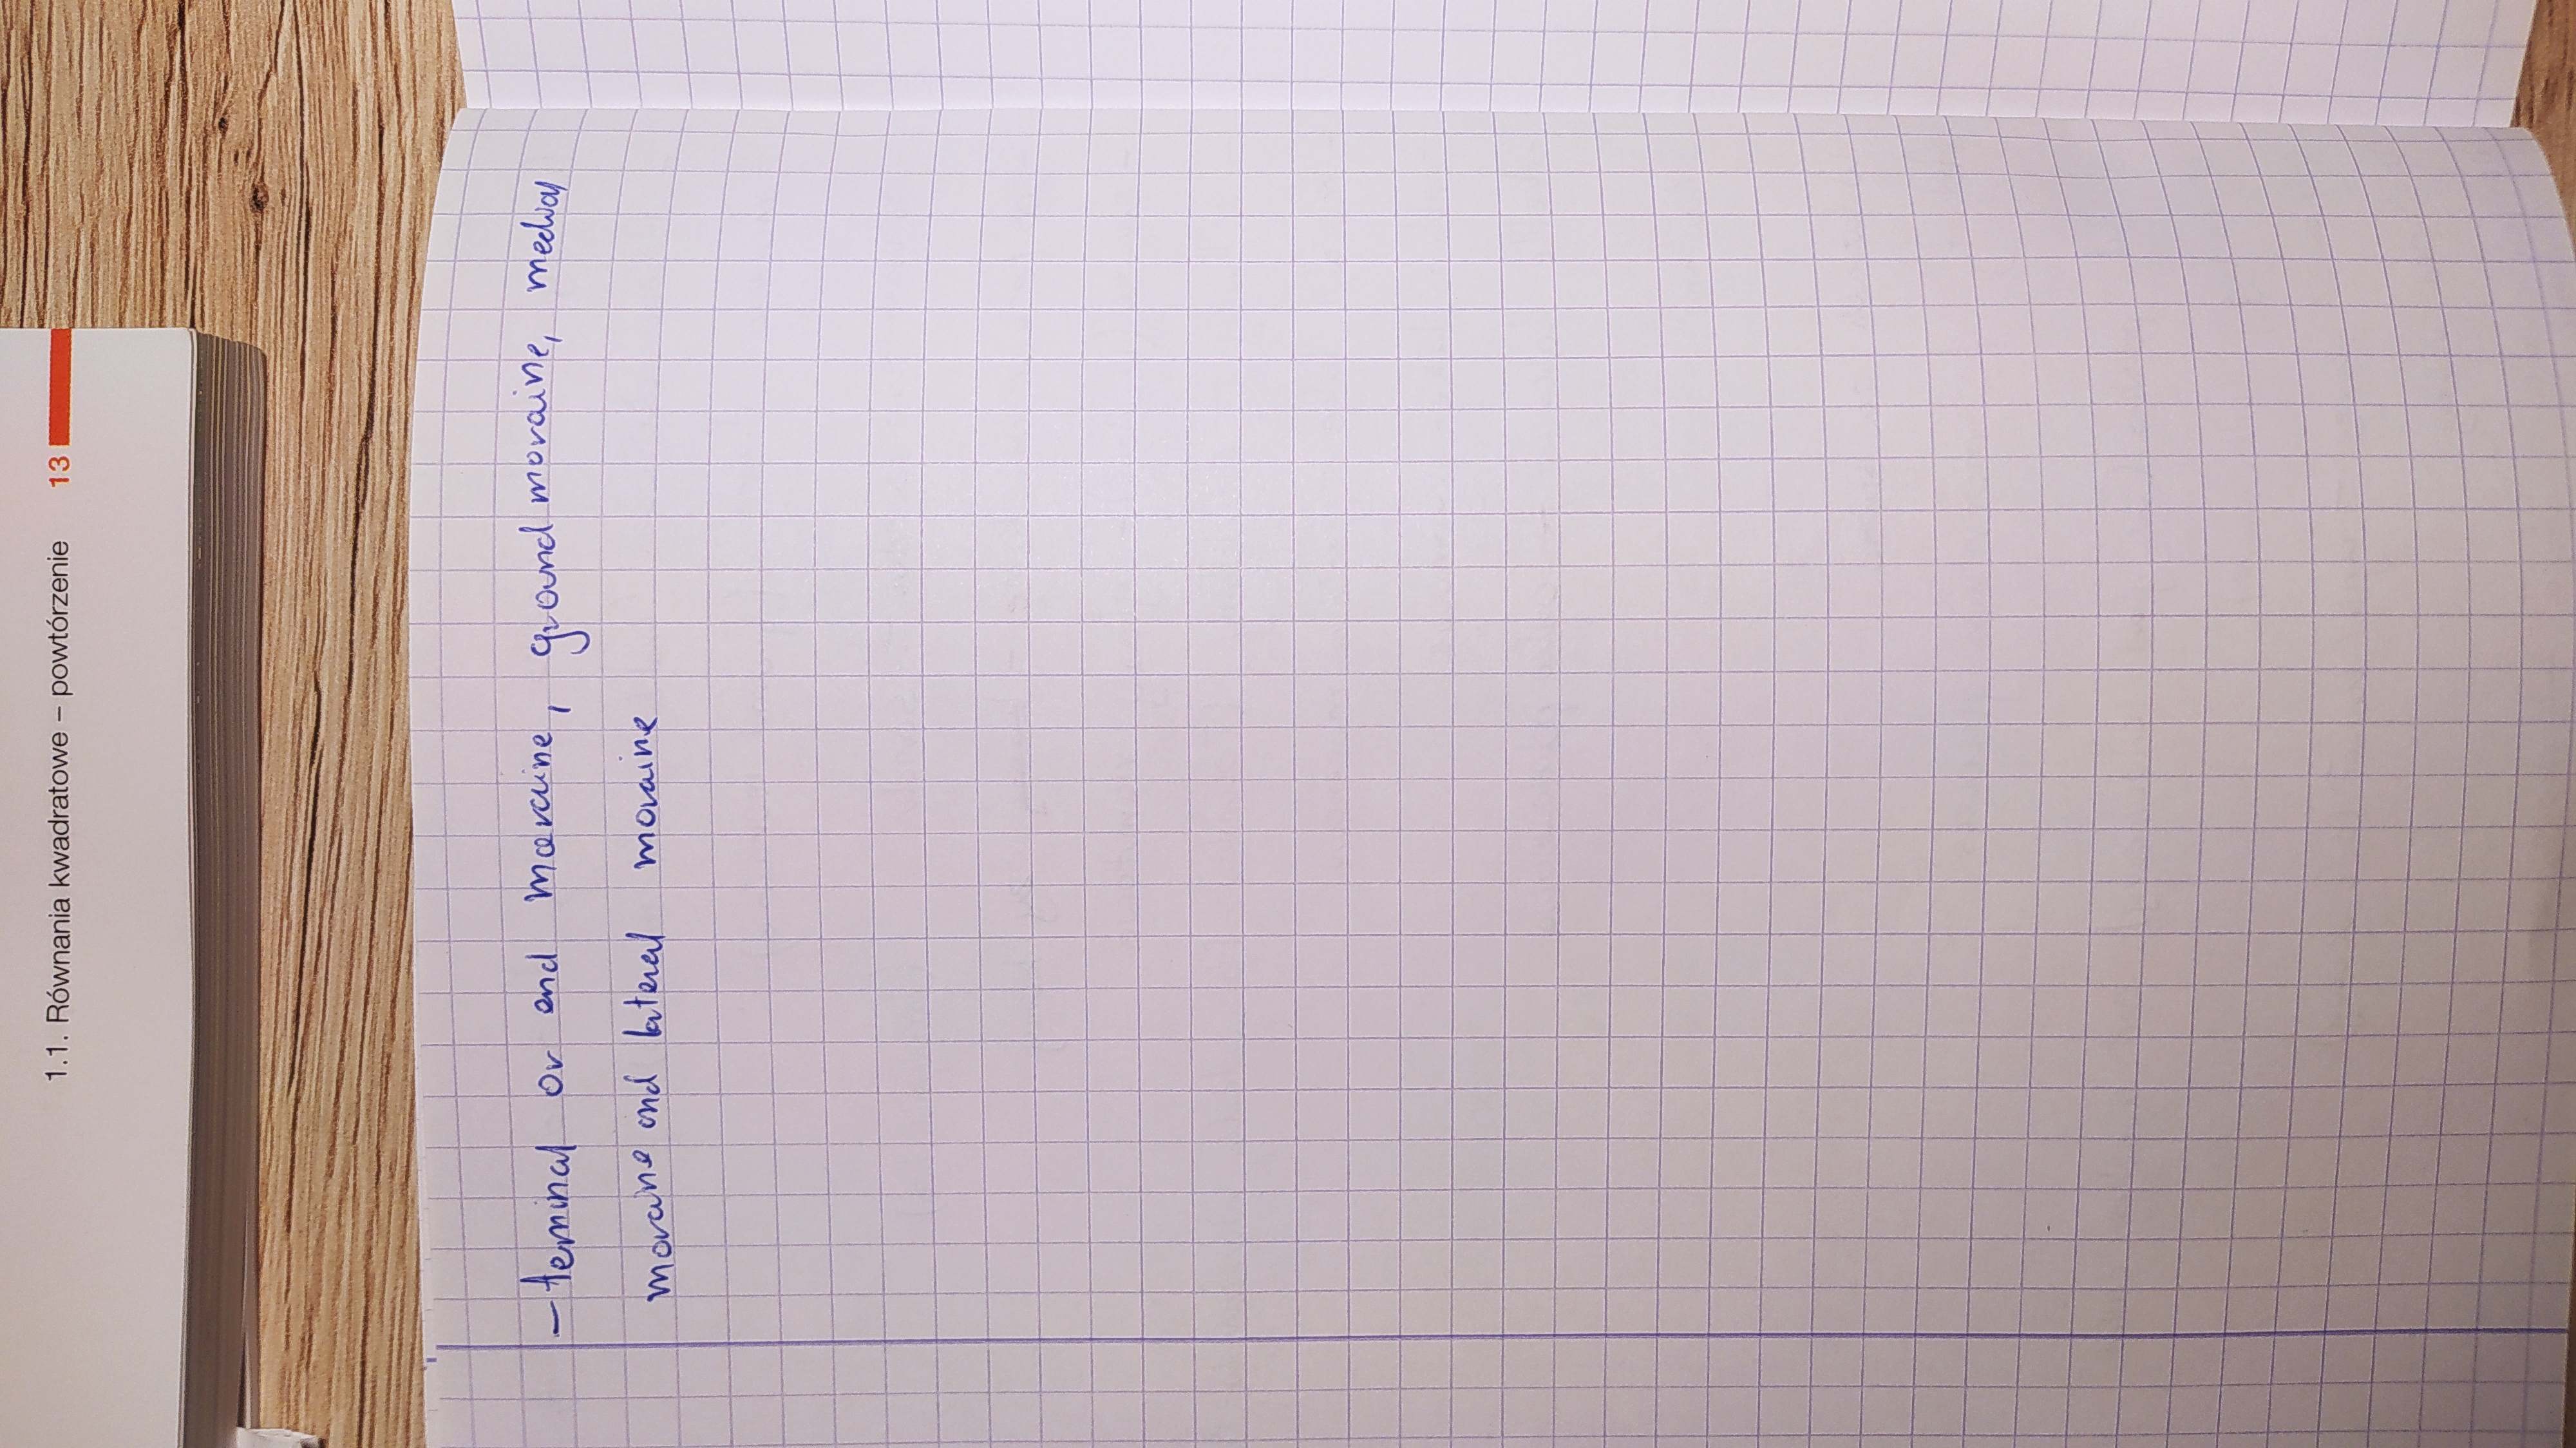 1.1. Równania kwadratowe – powtórzenie 13
– teminal or end moraine, ground moraine, medial
moraine and lateral moraine